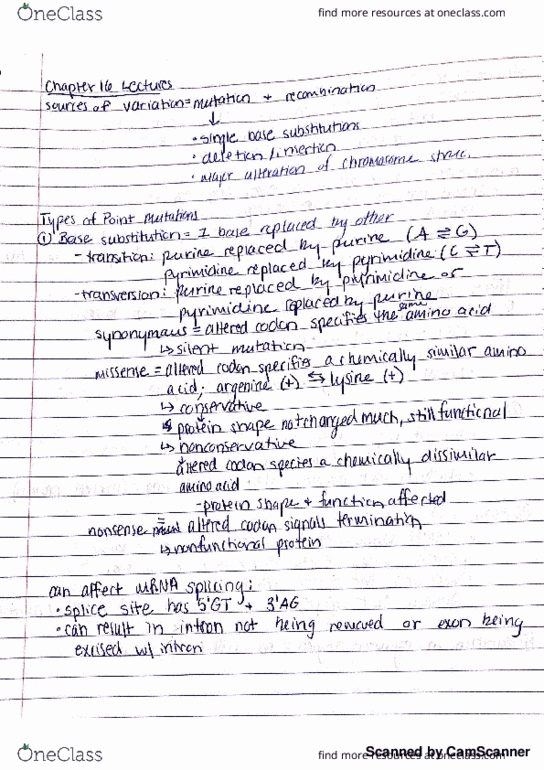 OneClass
find more resources at oneclass.com
Chapter 16 Lectures
sources of variation = mutation + recombination
↓
• single base substitutions
• deletion/insertion
• major alteration of chromosome struc.
Types of Point Mutations
① Base substitution = 1 base replaced by other
- transition: purine replaced by purine (A ⇌ G)
pyrimidine replaced by pyrimidine (C ⇌ T)
- transversion: purine replaced by pyrimidine or
pyrimidine replaced by purine
synonymous = altered codon specifies the same amino acid
↳ silent mutation
missense = altered codon specifis a chemically similar amino
acid; argenine (+) ⇆ lysine (+)
↳ conservative
↳ protein shape not changed much, still functional
↳ nonconservative
altered codon species a chemically dissimilar
amino acid
- protein shape + function affected
nonsense = altered codon signals termination
↳ nonfunctional protein
can affect mRNA splicing:
• splice site has 5'GT + 3'AG
• can result in intron not being removed or exon being
excised w/ intron
OneClass
find more resources at oneclass.com
Scanned by CamScanner